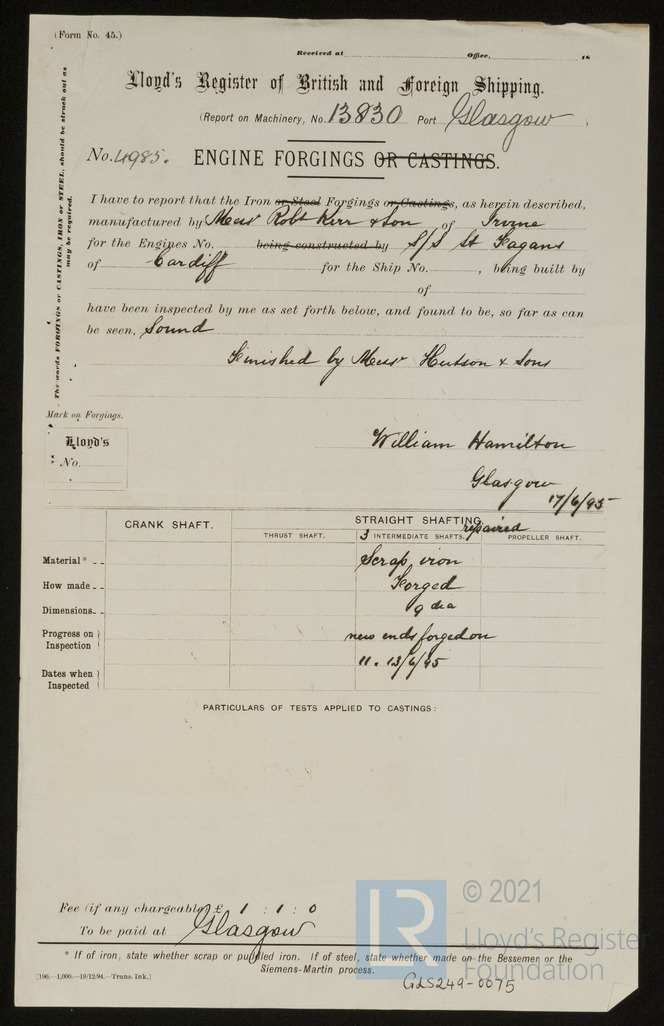 (Form No. 45.)
Received at Office, 18
Lloyd's Register of British and Foreign Shipping.
(Report on Machinery, No. 13830 Port Glasgow )
No. 4985. ENGINE FORGINGS OR CASTINGS.
The words FORGINGS or CASTINGS, IRON or STEEL, should be struck out as may be required.
I have to report that the Iron or Steel Forgings or Castings, as herein described,
manufactured by Messrs Robt Kerr & Son of Irvine
for the Engines No. being constructed by S/S St Fagans
of Cardiff for the Ship No. , being built by
of
have been inspected by me as set forth below, and found to be, so far as can
be seen, Sound
Finished by Messrs Hutson & Sons
Mark on Forgings.
Lloyd's
No.
William Hamilton
Glasgow
17/6/95
CRANK SHAFT. STRAIGHT SHAFTING repaired
THRUST SHAFT. 3 INTERMEDIATE SHAFTS. PROPELLER SHAFT.
Material* Scrap iron
How made Forged
Dimensions 9 dia
Progress on Inspection new ends forged on
Dates when Inspected 11. 13/6/95
PARTICULARS OF TESTS APPLIED TO CASTINGS:
Fee (if any chargeable) £ 1 : 1 : 0
To be paid at Glasgow
* If of iron, state whether scrap or puddled iron. If of steel, state whether made on the Bessemer or the
Siemens-Martin process.
[190.—1,000.—19/12/94.—Trans. Ink.]
GLS249-0075
LR © 2021
Lloyd's Register
Foundation